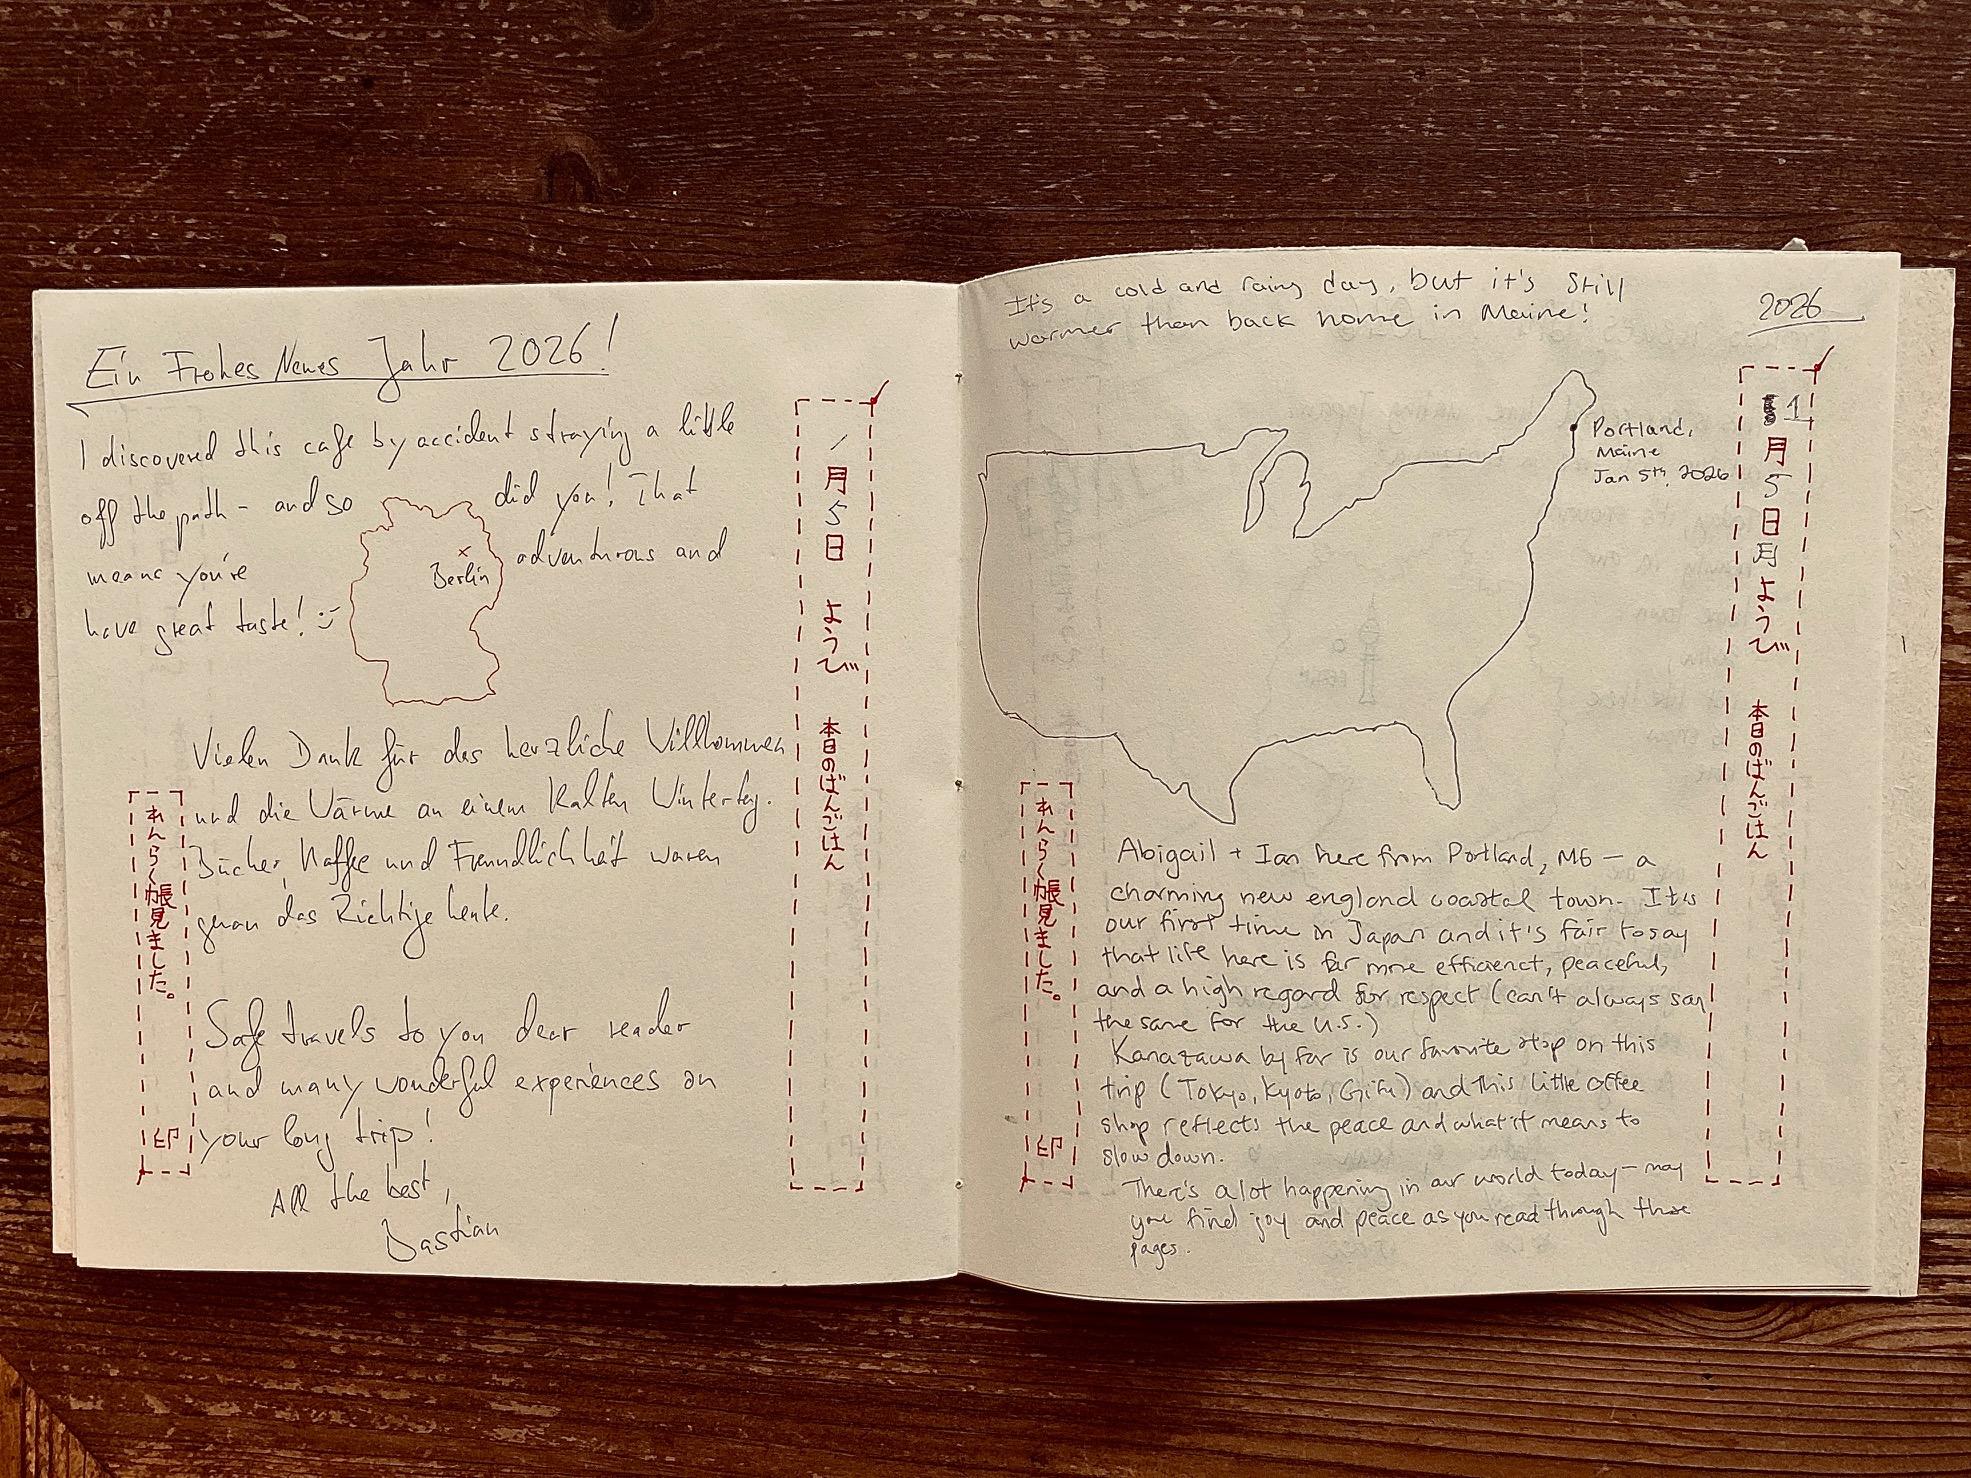 Ein Frohes Neues Jahr 2026!
I discovered this cafe by accident straying a little
off the path - and so did you! That
means you're adventurous and
have great taste! :-)
Berlin
Vielen Dank für das herzliche Willkommen
und die Wärme an einem kalten Wintertag.
Bücher, Kaffee und Freundlichkeit waren
genau das Richtige heute.
Safe travels to you dear reader
and many wonderful experiences on
your long trip!
All the best,
Bastian
1月5日 ようび 本日のばんごはん
れんらく帳見ました。 印
It's a cold and rainy day, but it's still
warmer than back home in Maine!
2026
Portland,
Maine
Jan 5th, 2026
1月5日月ようび 本日のばんごはん
れんらく帳見ました。 印
Abigail + Ian here from Portland, ME - a
charming new england coastal town. It's
our first time in Japan and it's fair to say
that life here is far more efficienct, peaceful,
and a high regard for respect (can't always say
the same for the U.S.)
Kanazawa by far is our favorite stop on this
trip (Tokyo, Kyoto, Gifu) and this little coffee
shop reflects the peace and what it means to
slow down.
There's a lot happening in our world today - may
you find joy and peace as you read through these
pages.